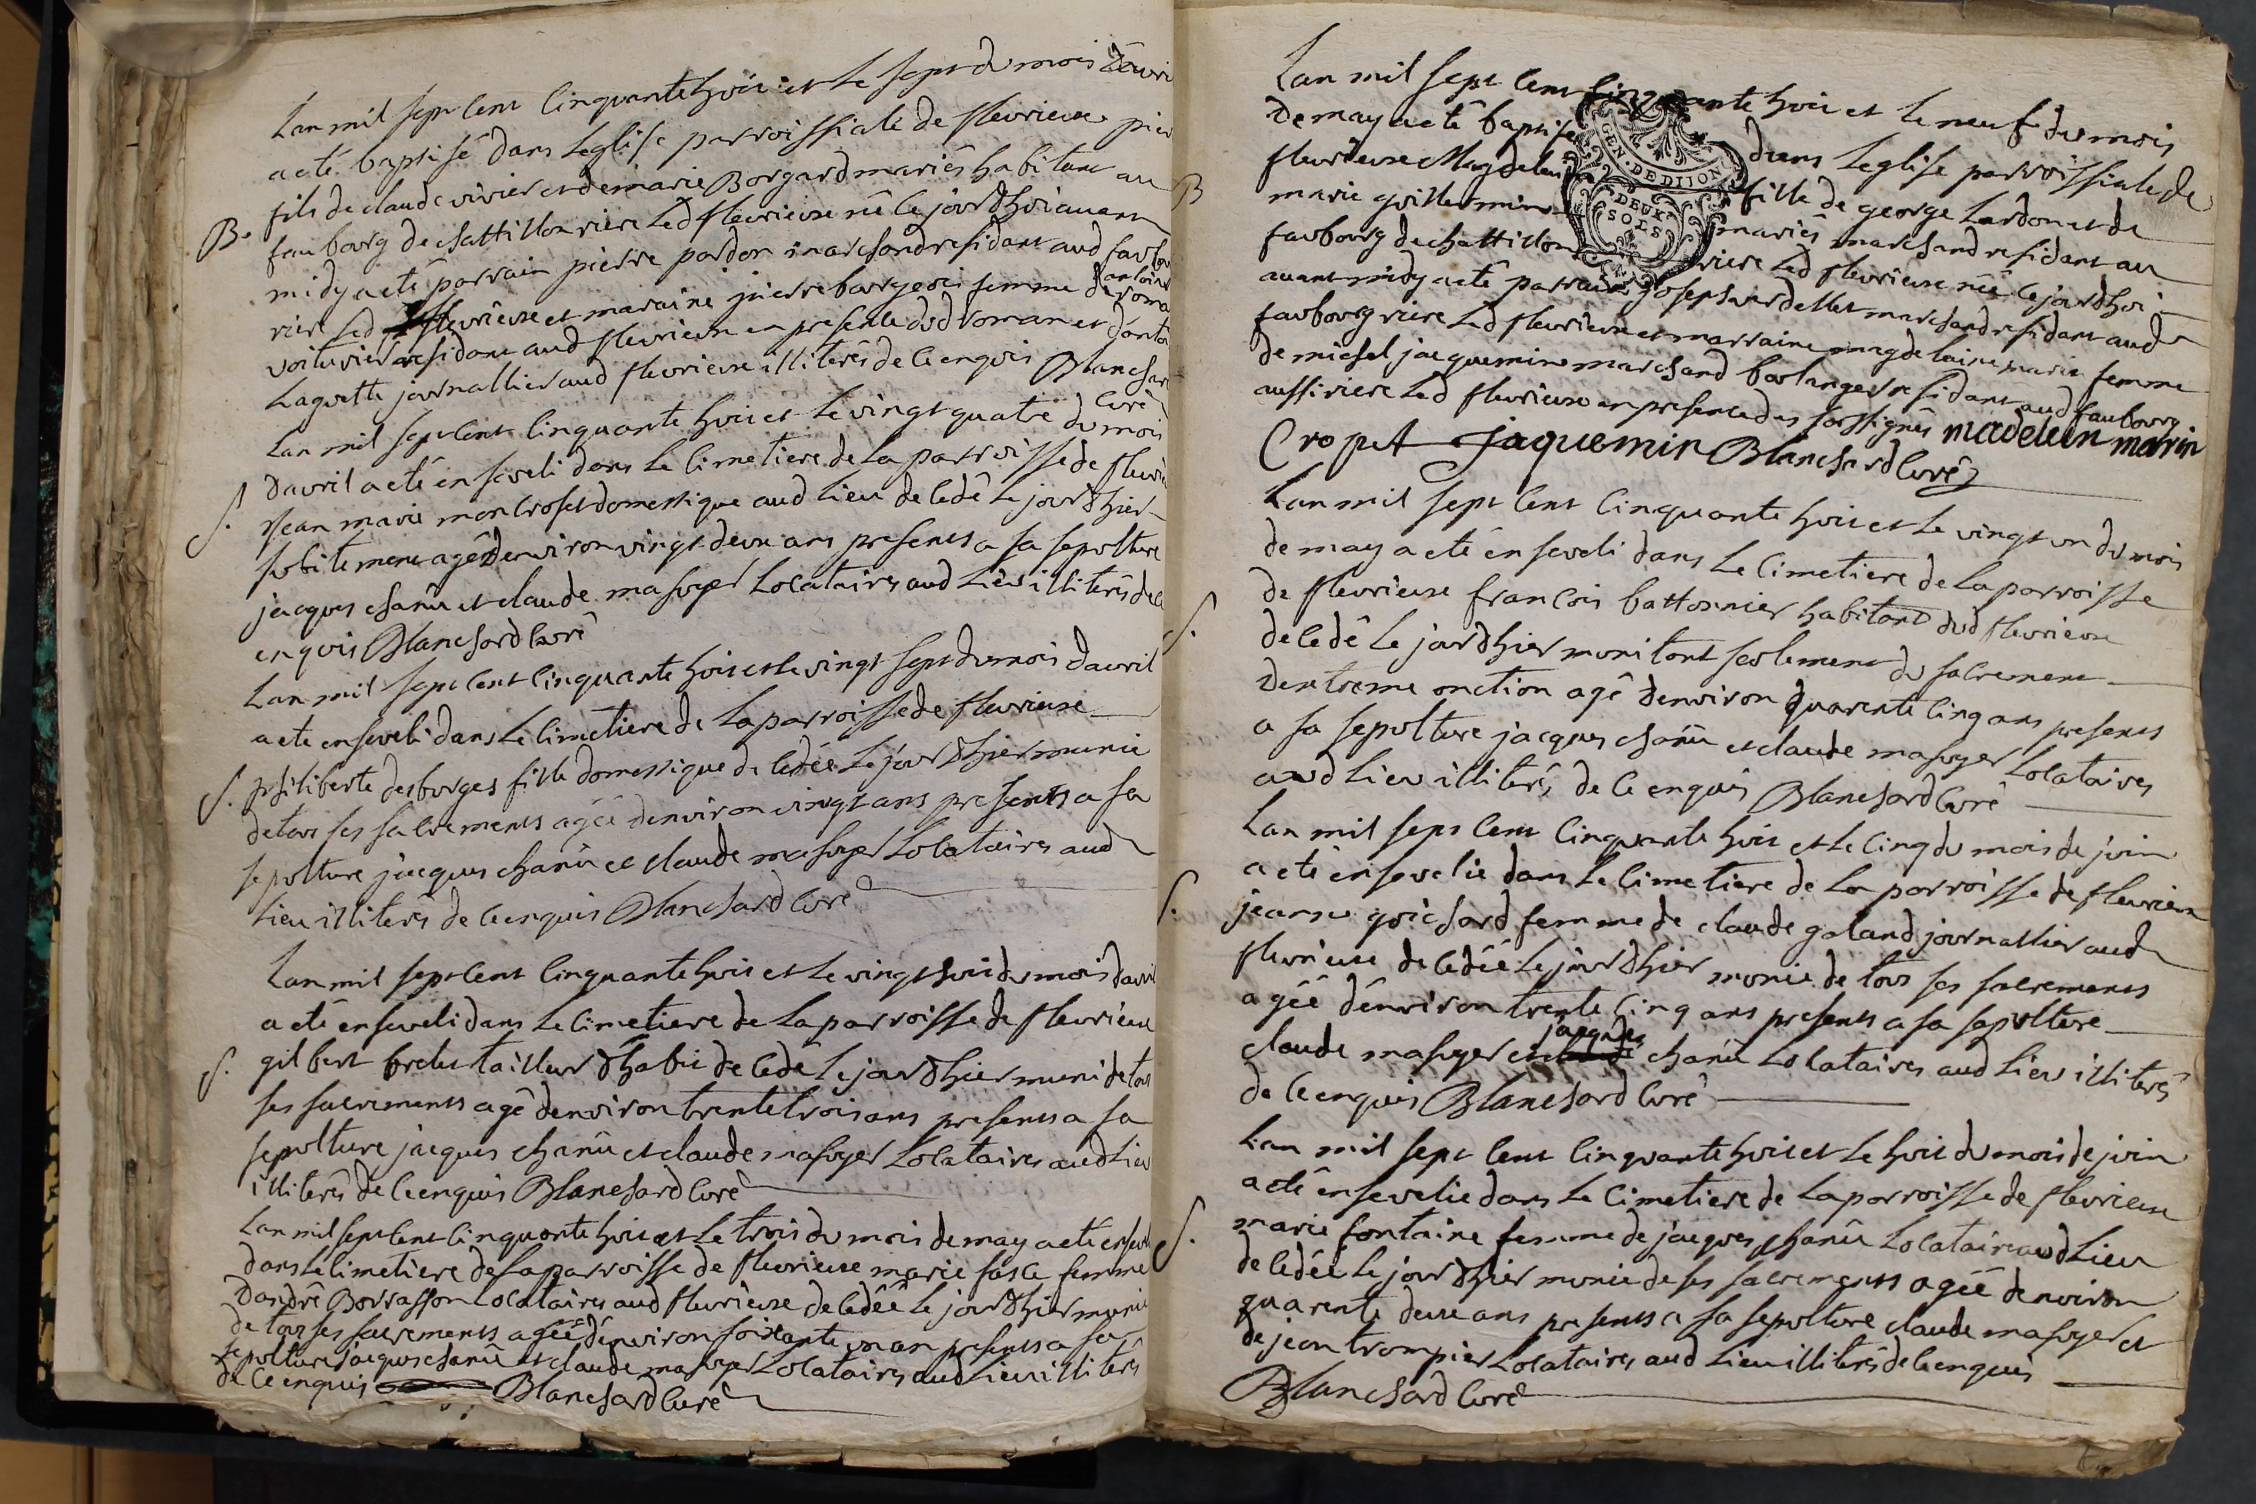 Lan mil sept cent cinquante huit et le sept du mois davri
a eté baptisé dans leglise parroissiale de fleurieux pier
B. fils de claude vivier et de marie Borgard mariés habitans au
faubourg de chattillon riere led fleurieux né le jourdhui avant
midy a eté parrain pierre pardon marchand residant aud faubou
riere led fleurieux et maraine pierre bourgeois femme dantoine roma
voiturier residant aud fleurieux en presence dud roman et dantoi
Laguette journallier aud fleurieux illiterés de ce enquis Blanchard
curé
Lan mil sept cent cinquante huit et le vingt quatre du mois
davril a eté enseveli dans le cimetiere de la parroisse de fleurie
S. Jean marie moncrochet domestique aud lieu decedé le jourdhier
subitement agé denviron vingt deux ans presents a sa sepolture
jacques chanu et claude masuyer Locataires aud Lieu illiterés de ce
enquis Blanchard curé
Lan mil sept cent cinquante huit et le vingt sept du mois davril
a eté enseveli dans le cimetiere de la parroisse de fleurieux
S. philiberte desburges fille domestique decedée le jourdhier munie
de tous ses sacrements agée denviron vingt ans presents a sa
sepolture jacques chanu et claude masuyer Locataires aud
Lieu illiterés de ce enquis Blanchard curé
Lan mil sept cent cinquante huit et le vingt huit du mois davril
a eté enseveli dans le cimetiere de la parroisse de fleurieux
S. gilbert brelut tailleur dhabit decedé le jourdhier muni de tous
ses sacrements agé denviron trente trois ans presents a sa
sepolture jacques chanu et claude masuyer Locataires aud Lieu
illiterés de ce enquis Blanchard curé
Lan mil sept cent cinquante huit et le trois du mois de may a eté enseve
dans le cimetiere de la parroisse de fleurieux marie femme
dandré Borrasson Locataires aud fleurieux decedée le jourdhier munie
de tous ses sacrements agée denviron soixante un an presents a sa
sepolture jacques chanu et claude masuyer Locataires aud Lieu illiterés
de ce enquis Blanchard curé
Lan mil sept cent cinquante huit et le neuf du mois
de may a eté baptisée dans leglise parroissiale de
B fleurieux Magdelaine fille de george Lardon et de
marie guillermin mariés marchand residant au
faubourg de chattillon riere led fleurieux née le jourdhui
avant midy a eté parrain joseph verdellet marchand residant aud
faubourg riere led fleurieux et marraine magdelaine marin femme
de michel jacquemin marchand boulanger residant aud faubourg
aussi riere led fleurieux en presence des sossignés madeleen marin
Cropet Jaquemin Blanchard Curé
GEN. DE DIJON
DEUX
SOLS
Lan mil sept cent cinquante huit et le vingt un du mois
de may a eté enseveli dans le cimetiere de la parroisse
S. de fleurieux francois battonnier habitant dud fleurieux
decedé le jourdhier muni tant seulement du sacrement
dextreme onction agé denviron quarente cinq ans presents
a sa sepolture jacques chanu et claude masuyer Locataires
aud Lieu illiterés de ce enquis Blanchard curé
Lan mil sept cent cinquante huit et le cinq du mois de juin
a eté ensevelie dans le cimetiere de la parroisse de fleurieux
S. jeanne guichard femme de claude galand journallier aud
fleurieux decedée le jourdhier munie de tous ses sacrements
agée denviron trente cinq ans presents a sa sepolture
claude masuyer et jacques chanu Locataires aud Lieu illiterés
de ce enquis Blanchard curé
Lan mil sept cent cinquante huit et le huit du mois de juin
a eté ensevelie dans le cimetiere de la parroisse de fleurieux
S. marie fontaine femme de jacques chanu Locataire aud Lieu
decedée le jourdhier munie de ses sacrements agée denviron
quarente deux ans presents a sa sepolture claude masuyer et
de jean trompier Locataires aud Lieu illiterés de ce enquis
Blanchard curé